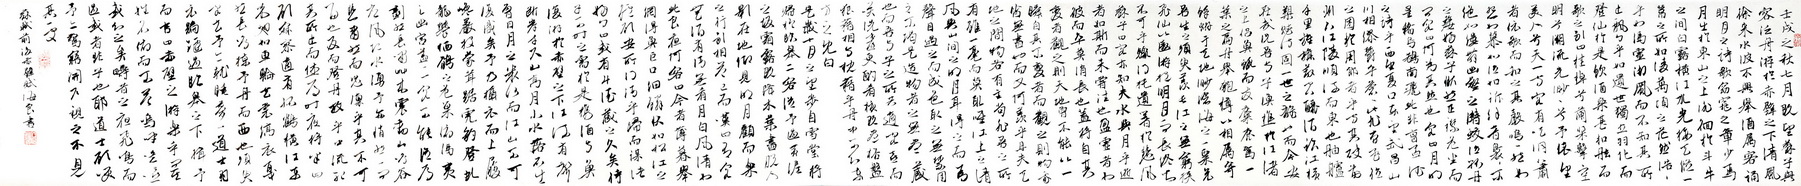 壬戌之秋七月既望蘇子與
客泛舟游於赤壁之下清風
徐來水波不興舉酒屬客誦
明月之詩歌窈窕之章少焉
月出於東山之上徘徊於斗牛
之間白露橫江水光接天縱一
葦之所如凌萬頃之茫然浩浩
乎如馮虛御風而不知其所
止飄飄乎如遺世獨立羽化而
登仙於是飲酒樂甚扣舷而
歌之歌曰桂棹兮蘭槳擊空
明兮溯流光渺渺兮予懷望
美人兮天一方客有吹洞簫
者倚歌而和之其聲嗚嗚然如
怨如慕如泣如訴餘音裊裊不
絕如縷舞幽壑之潛蛟泣孤舟
之嫠婦蘇子愀然正襟危坐而
問客曰何為其然也客曰月明
星稀烏鵲南飛此非曹孟德
之詩乎西望夏口東望武昌山
川相繆鬱乎蒼蒼此非孟德
之困於周郎者乎方其破荊
州下江陵順流而東也舳艫
千里旌旗蔽空釃酒臨江橫
槊賦詩固一世之雄也而今安
在哉況吾與子漁樵於江渚
之上侶魚蝦而友麋鹿駕一
葉之扁舟舉匏樽以相屬寄
蜉蝣於天地渺滄海之一粟哀
吾生之須臾羨長江之無窮挾
飛仙以遨遊抱明月而長終知
不可乎驟得託遺響於悲風
蘇子曰客亦知夫水與月乎逝
者如斯而未嘗往也盈虛者如
彼而卒莫消長也蓋將自其變
者而觀之則天地曾不能以一
瞬自其不變者而觀之則物與
我皆無盡也而又何羨乎且夫天
地之間物各有主苟非吾之所
有雖一毫而莫取惟江上之清
風與山間之明月耳得之而為
聲目遇之而成色取之無禁用
之不竭是造物者之無盡藏
也而吾與子之所共適客喜
而笑洗盞更酌肴核既盡杯盤
狼藉相與枕藉乎舟中不知東
方之既白
是歲十月之望步自雪堂將
歸於臨皋二客從予過黃泥
之坂霜露既降木葉盡脫人
影在地仰見明月顧而樂
之行歌相答已而嘆曰有客
無酒有酒無肴月白風清如
此良夜何客曰今者薄暮舉
網得魚巨口細鱗狀如松江之
鱸顧安所得酒乎歸而謀諸
婦婦曰我有斗酒藏之久矣待
子不時之需於是攜酒與魚
復游於赤壁之下江流有聲
斷岸千尺山高月小水落石出
曾日月之幾何而江山不可
復識矣予乃攝衣而上履
巉巖披蒙茸踞虎豹登虬
龍攀棲鶻之危巢俯馮夷
之幽宮蓋二客不能從焉
劃然長嘯草木震動山鳴谷
應風起水湧予亦悄然而
悲肅然而恐凜乎其不可
留也反而登舟放乎中流聽
其所止而休焉時夜將半四
顧寂寥適有孤鶴橫江東
來翅如車輪玄裳縞衣戛
然長鳴掠予舟而西也須臾
客去予亦就睡夢一道士羽
衣蹁躚過臨皋之下揖予
而言曰赤壁之游樂乎問其
姓名俯而不答嗚呼噫嘻
我知之矣疇昔之夜飛鳴而
過我者非子也耶道士顧笑
予亦驚寤開戶視之不見
其處
蘇軾前後赤壁賦